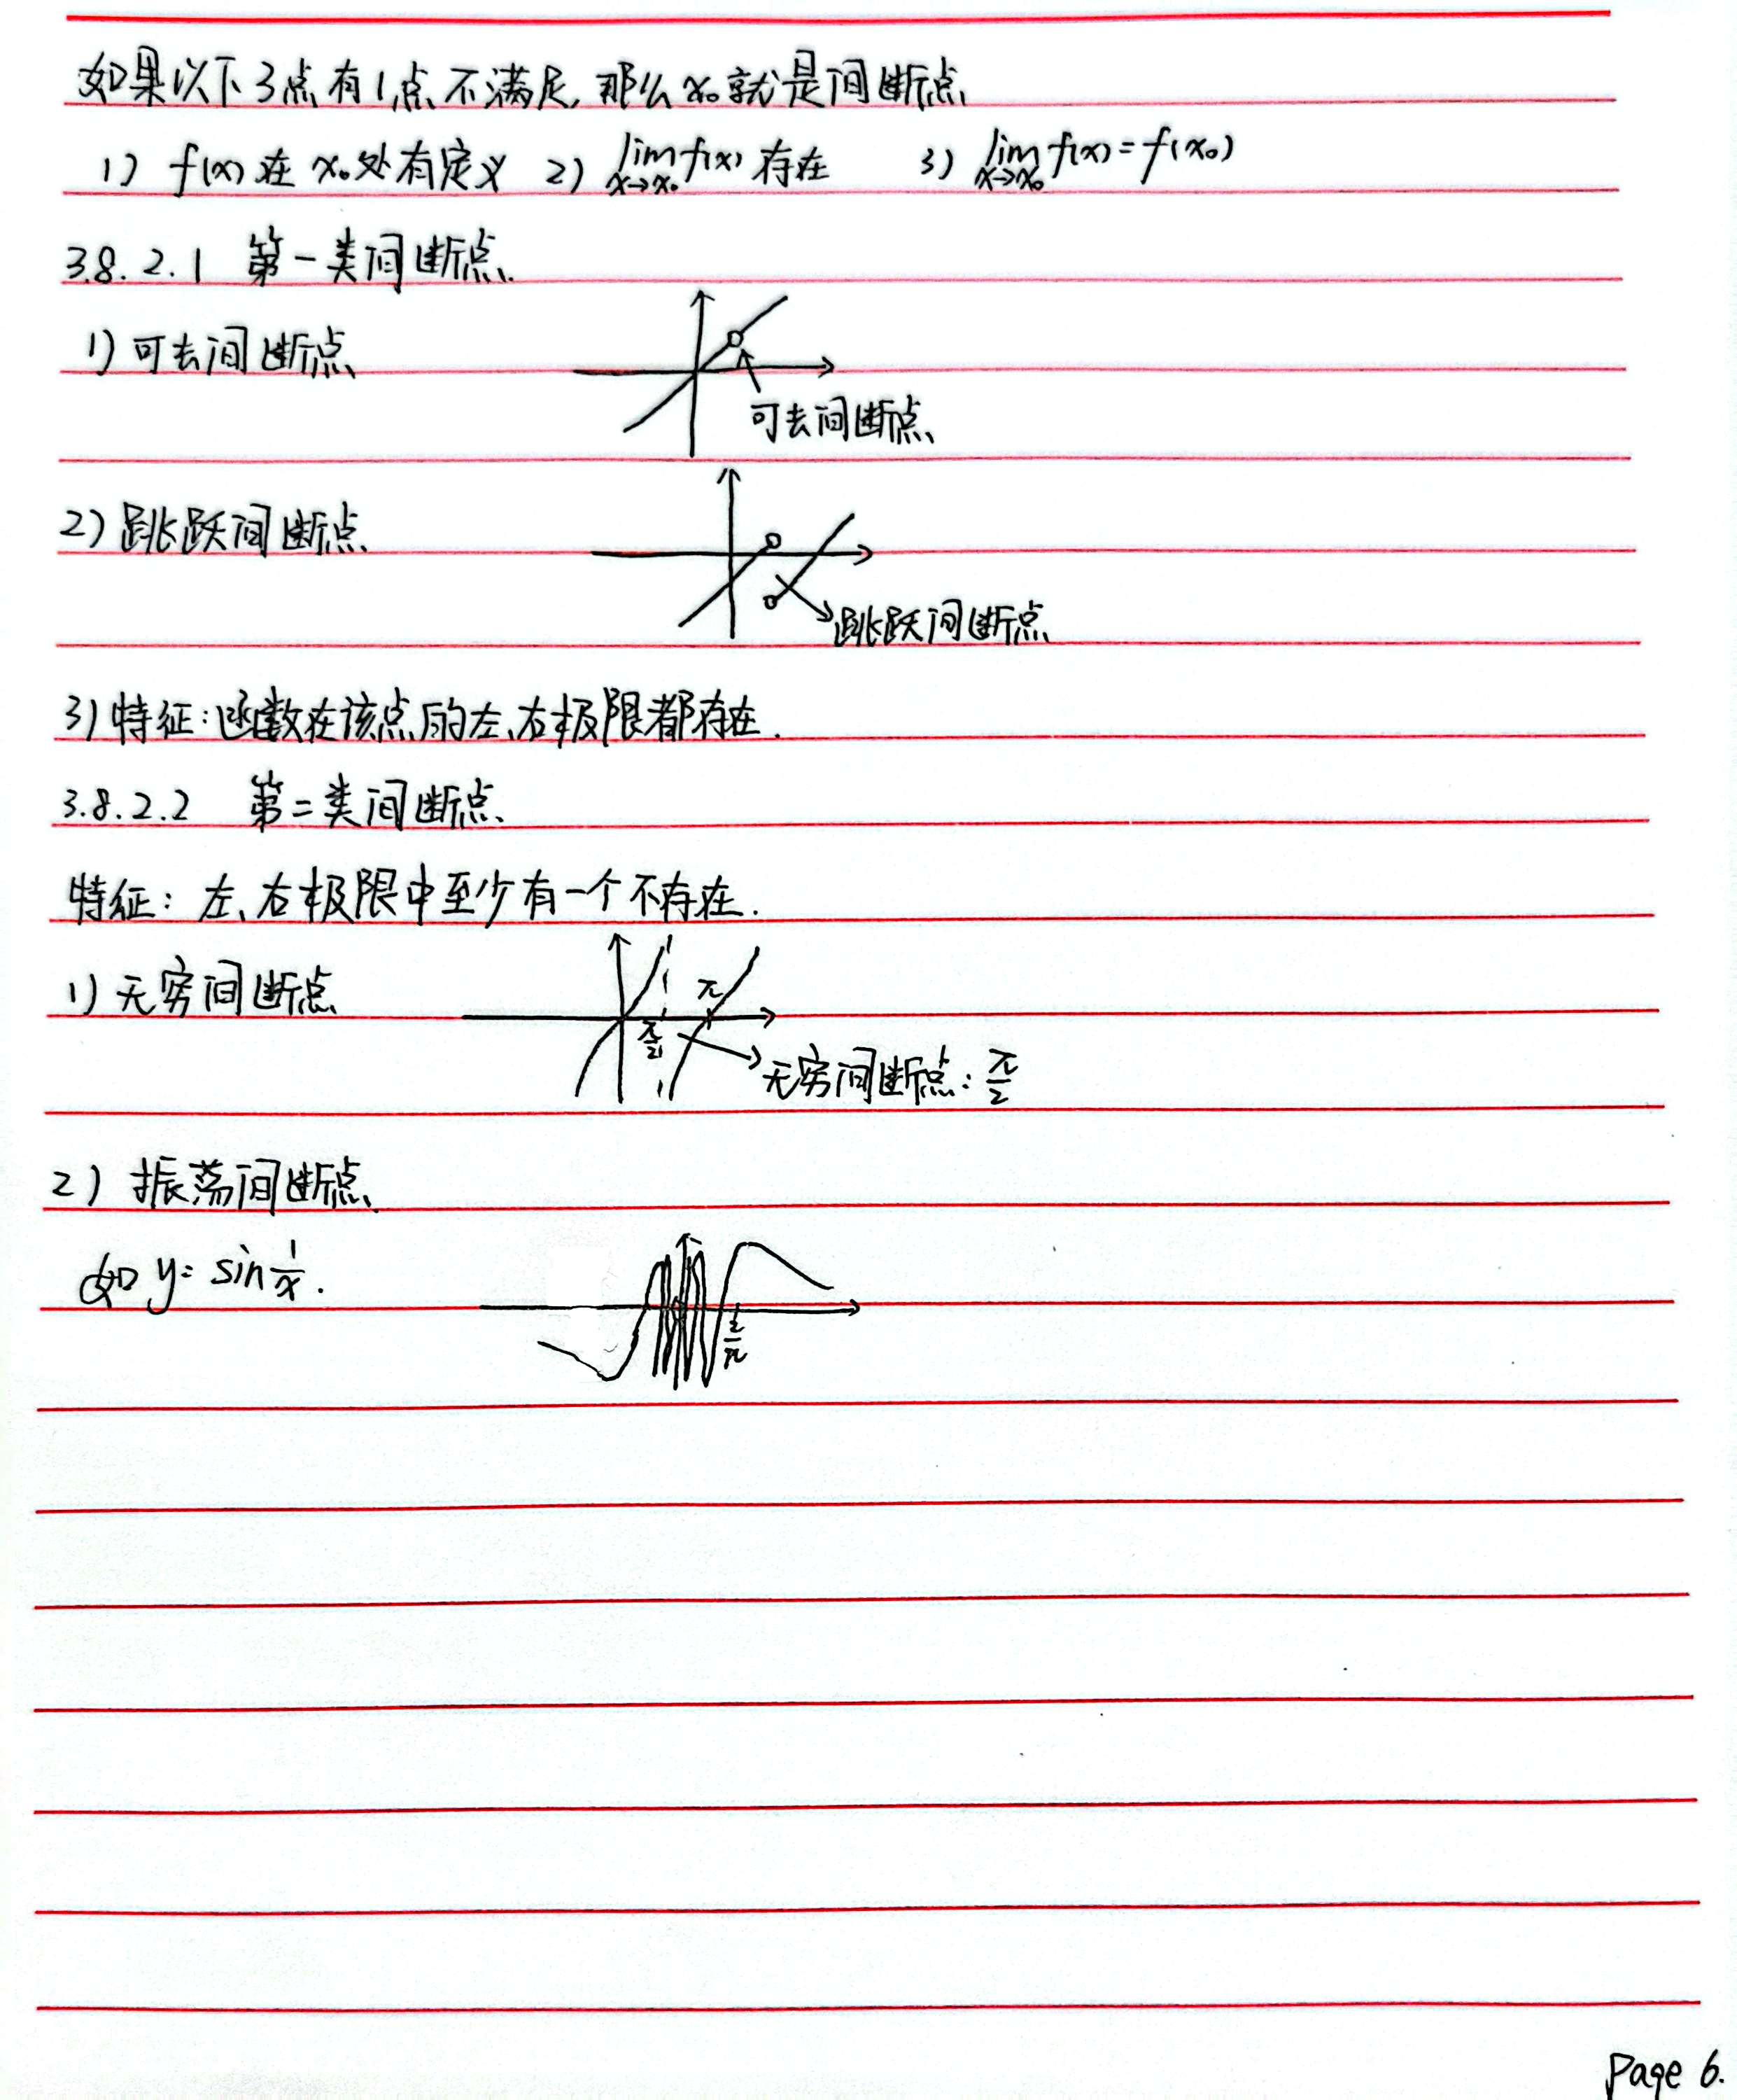 如果以下3点有1点不满足,那么x₀就是间断点
1) f(x)在x₀处有定义 2) lim x→x₀ f(x) 存在 3) lim x→x₀ f(x)=f(x₀)
3.8.2.1 第一类间断点
1) 可去间断点
可去间断点
2) 跳跃间断点
跳跃间断点
3) 特征:函数在该点的左、右极限都存在.
3.8.2.2 第二类间断点
特征: 左、右极限中至少有一个不存在.
1) 无穷间断点
π
π/2
无穷间断点: π/2
2) 振荡间断点
如 y= sin 1/x.
2/π
Page 6.